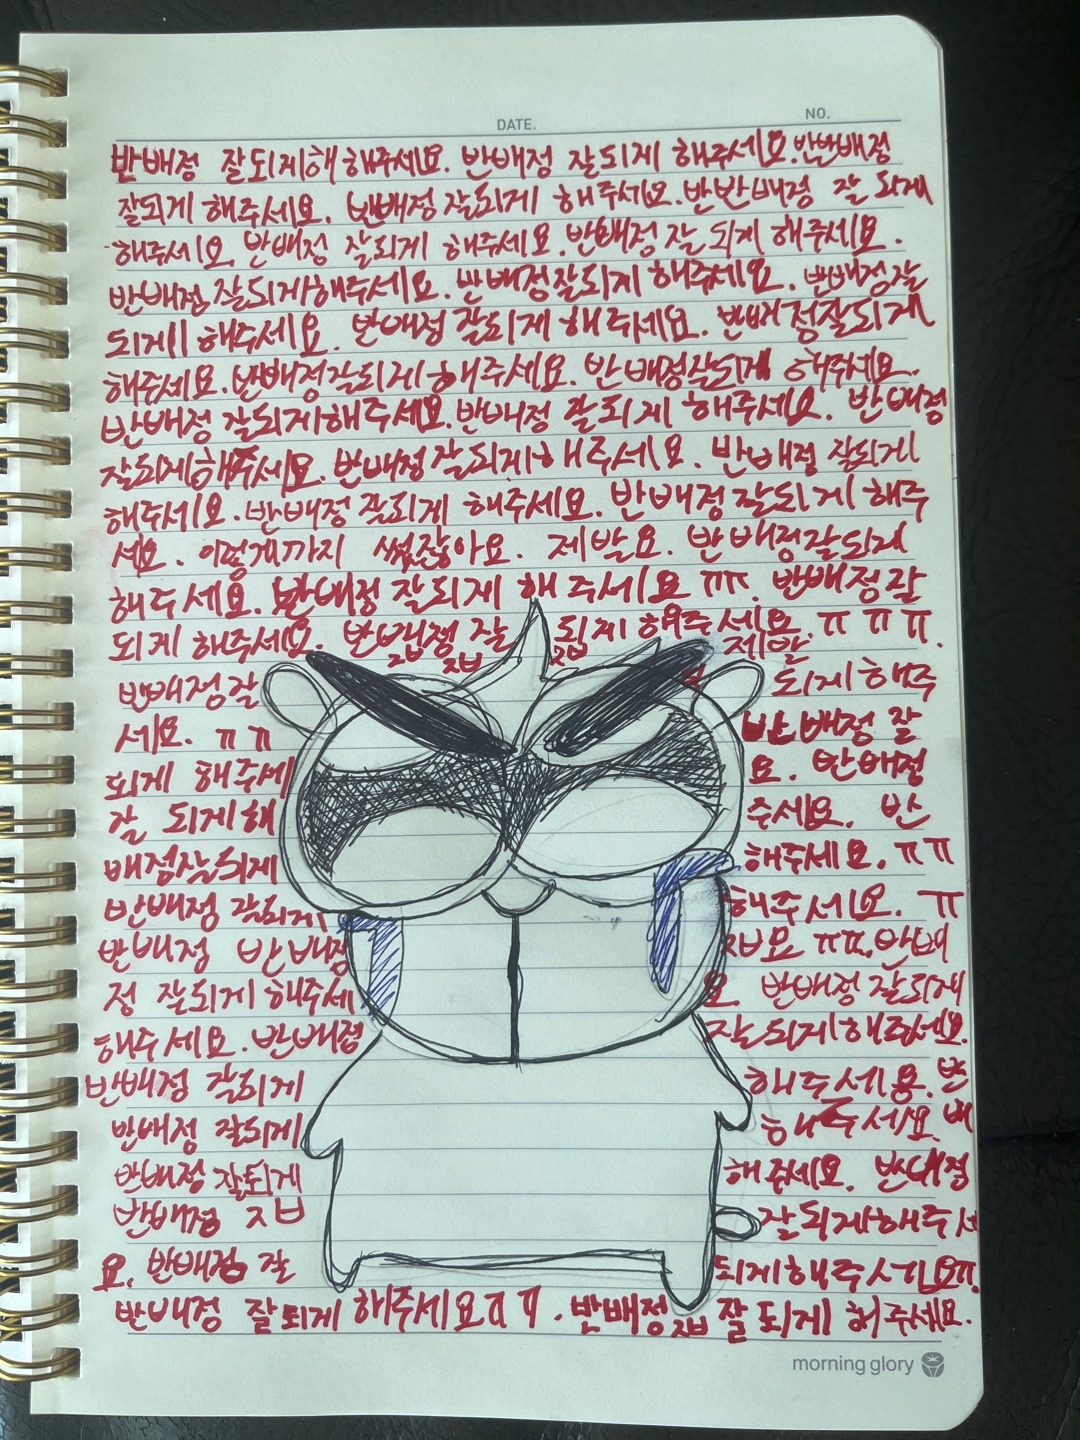 DATE. NO.
반배정 잘되게해 해주세요. 반배정 잘되게 해주세요. 반반배정
잘되게 해주세요. 반배정 잘되게 해주세요. 반반배정 잘 되게
해주세요. 반배정 잘되게 해주세요. 반배정 잘 되게 해주세요.
반배정 잘되게해주세요. 반배정잘되게 해주세요. 반배정잘
되게 해주세요. 반배정 잘되게 해주세요. 반배정잘되게
해주세요. 반배정잘되게해주세요. 반배정잘되게 해주세요.
반배정 잘되게해주세요. 반배정 잘되게 해주세요. 반배정
잘되게해주세요. 반배정잘되게해주세요. 반배정 잘되게
해주세요. 반배정 잘되게 해주세요. 반배정잘되게 해주
세요. 이렇게까지 썼잖아요. 제발요. 반배정잘되게
해주세요. 반배정 잘되게 해주세요ㅠㅠ. 반배정잘
되게 해주세요. 반뱁정 잘 됩게 해주세요. ㅠㅠㅠ.
ㅈㅂ 제발
반배정잘 되게해주
세요. ㅠㅠ 반배정 잘
되게 해주세 요. 반배정
잘 되게해 주세요. 반
배정잘되게 해주세요. ㅠㅠ
반배정 잘되게 해주세요. ㅠ
반배정 반배정 ㅈㅂ요 ㅠㅠ. 반배
정 잘되게해주세 요 반배정잘되게
해주세요. 반배정 잘되게해주세요.
반배정 잘되게 해주세용. 반
반배정 잘되게 해주세요. 배
반배정 잘되게 해주세요. 반배정
반배정 ㅈㅂ 잘되게해주세
요. 반배정 잘 되게해주세요ㅠ.
반배정 잘되게 해주세요ㅠㅠ. 반배정 ㅈㅂ 잘되게 해주세요.
morning glory